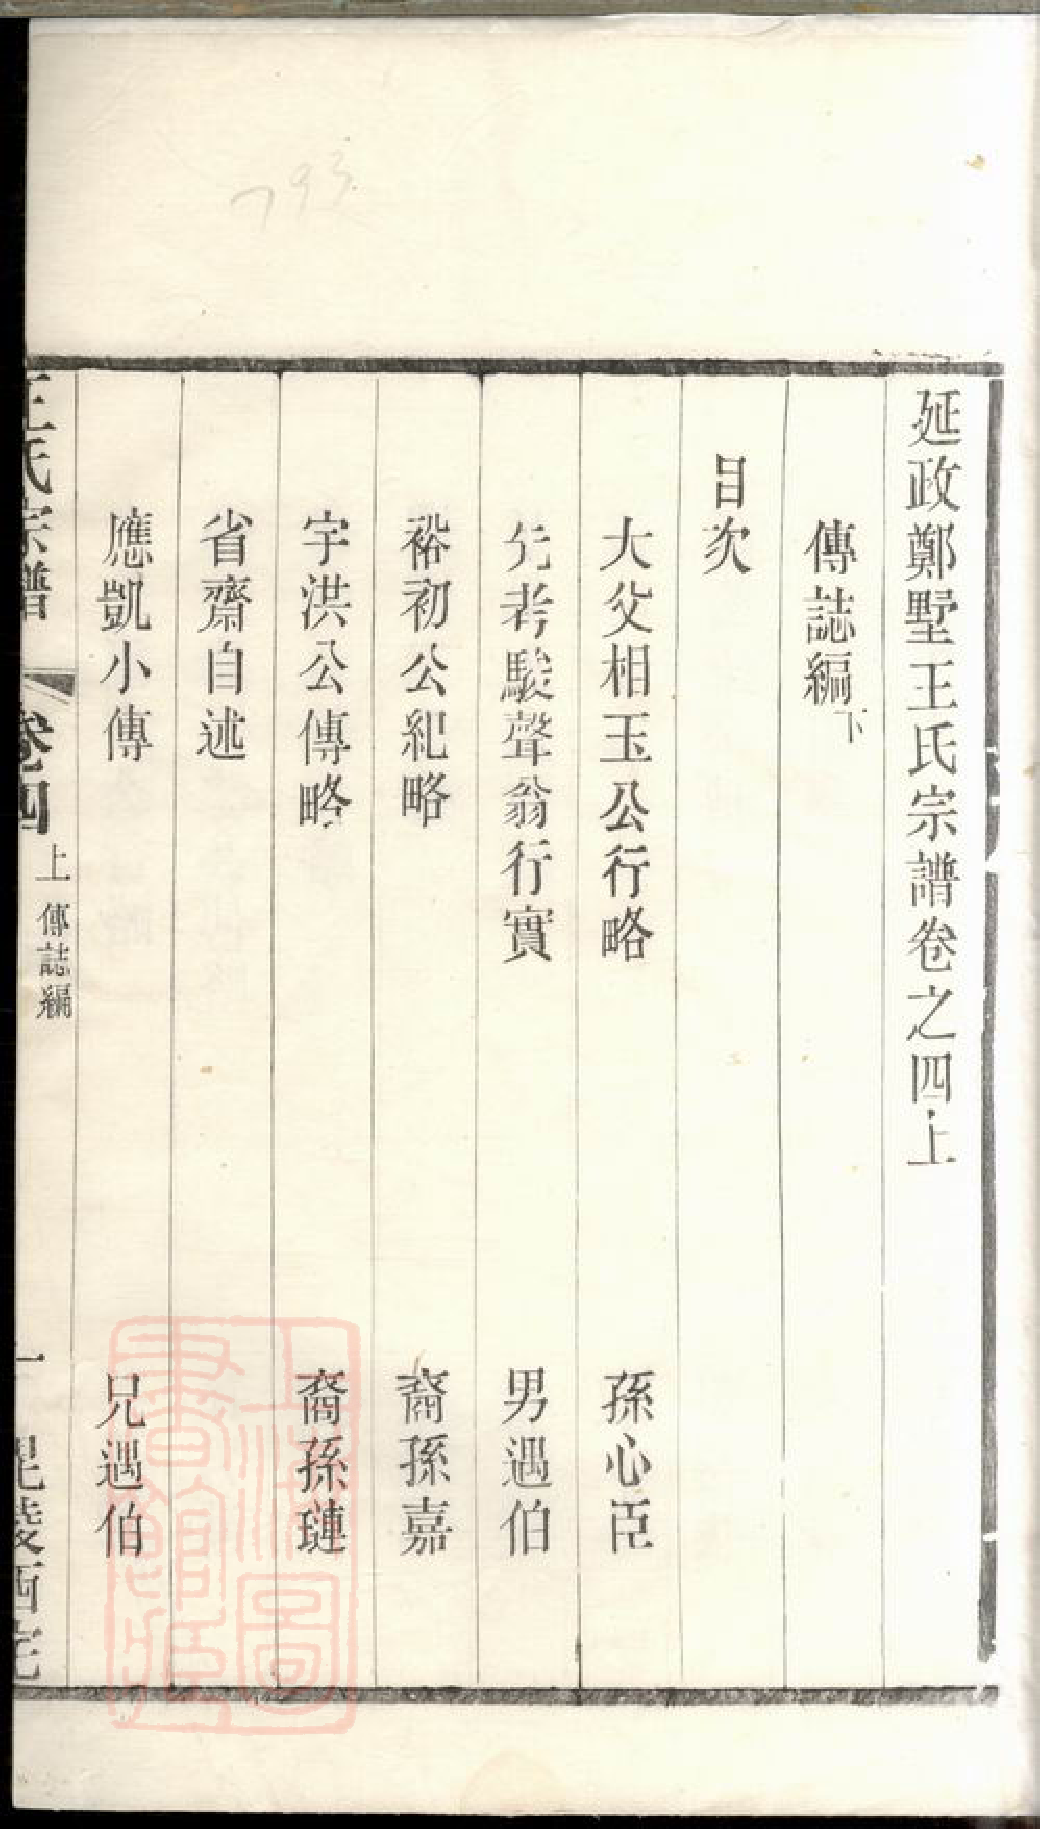 延政鄭墅王氏宗譜卷之四上
傳誌編下
目次
大父相玉公行略 孫心臣
先考駿聲翁行實 男遇伯
裕初公紀略 裔孫嘉
宇洪公傳略 裔孫璉
省齋自述
應凱小傳 兄遇伯
王氏宗譜 卷四 上 傳誌編 一 毘陵西宅
上海圖書館藏
793